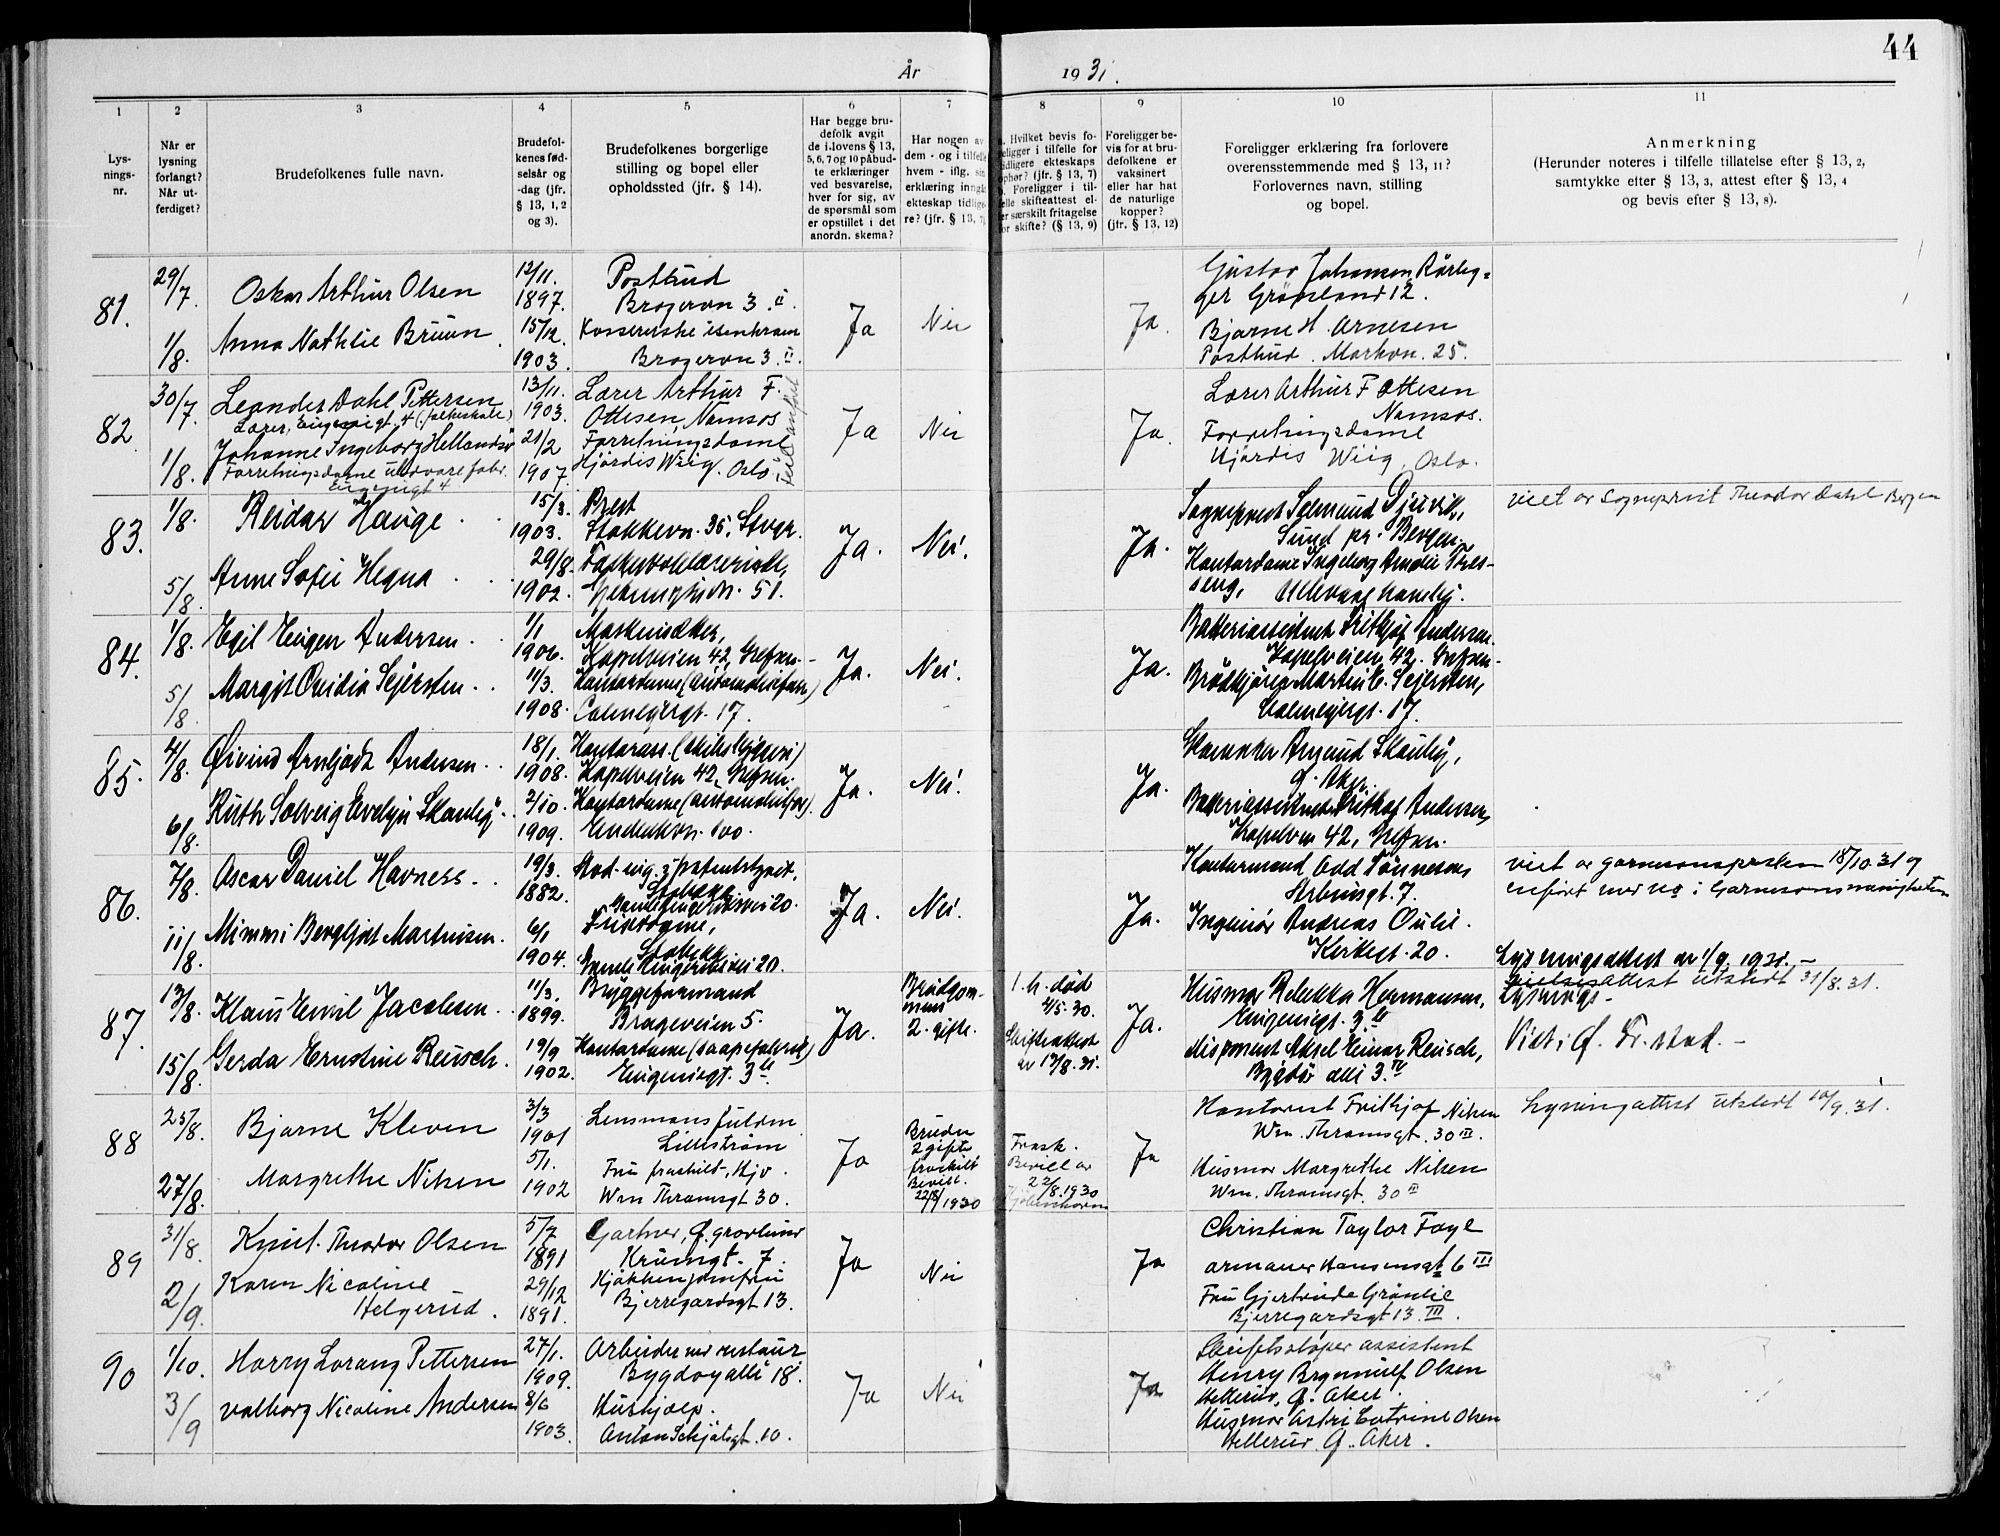 44
År 1931.
1
Lys-
nings-
nr.
2
Når er
lysning
forlangt?
Når ut-
ferdiget?
3
Brudefolkenes fulle navn.
4
Brudefol-
kenes fød-
selsår og
-dag (jfr.
§ 13, 1, 2
og 3).
5
Brudefolkenes borgerlige
stilling og bopel eller
opholdssted (jfr. § 14).
6
Har begge bru-
defolk avgit
de i lovens § 13,
5, 6, 7 og 10 påbud-
te erklæringer
ved besvarelse,
hver for sig, av
de spørsmål som
er opstillet i det
anordn. skema?
7
Har nogen av
dem - og i tilfelle
hvem - iflg. sin
erklæring inngått
ekteskap tidlige-
re? (jfr. § 13, 7)
8
a. Hvilket bevis fo-
religger i tilfelle for
tidligere ekteskaps
ophør? (jfr. § 13, 7)
b. Foreligger i til-
felle skifteattest el-
ler særskilt fritagelse
for skifte? (§ 13, 9)
9
Foreligger be-
vis for at bru-
defolkene er
vaksinert
eller har hat
de naturlige
kopper?
(jfr. § 13, 12)
10
Foreligger erklæring fra forlovere
overensstemmende med § 13, 11?
Forlovernes navn, stilling
og bopel.
11
Anmerkning
(Herunder noteres i tilfelle tillatelse efter § 13, 2,
samtykke efter § 13, 3, attest efter § 13, 4
og bevis efter § 13, 8).
81.
29/7.
1/8.
Oskar Arthur Olsen
Anna Nathlie Bruun
12/11.
1897.
15/12.
1903.
Postbud
3. II.
3. II.
Ja
Nei
Ja.
Gustav Johansen
Grønland 12.
Bjarne H. Arnesen
Postbud. Markvn. 25.
82
30/7.
1/8.
Leander Dahl Pettersen
Lærer, Eugeniigt. 4 (folkeskole)
Johanne Ingeborg Hellandsø
Eugeniigt 4
13/11.
1903.
21/2
1907.
Lærer Arthur F.
Ottesen, Namsos
Forretningsdame
Hjørdis Wiig. Oslo
Feil anført
Ja
Nei
Ja.
Lærer Arthur F Ottesen
Namsos.
Forretningsdame
Hjørdis Wiig, Oslo.
83.
1/8.
5/8.
Reidar Hauge
Anne Sofie Hegna
15/3.
1903.
29/8.
1902.
Prest
Stokkevn. 35, Stvgr.
51.
Ja.
Nei.
Ja.
Sogneprest
Sund pr. Bergen.
Kontordame Ingeborg Amalie Thes-
seng, Ullevaal haveby.
viet av sogneprest Theodor Dahl Bergen
84.
1/8.
5/8.
Egil Eugen Andersen
Margit Ovidia Sejersten
1/1
1906.
11/3.
1908.
Kapelveien 42, Grefsen.
Kontordame
Calmeyergt. 17.
Ja.
Nei.
Ja.
Batteriassistent Frithjof Andersen.
Kapelveien 42. Grefsen
Sejersten,
Calmeyergt. 17.
85.
4/8.
6/8.
Øivind Arnljot Andersen
Ruth Solveig Evelyn Skauby
18/1.
1908.
2/10.
1909.
Kapelveien 42, Grefsen.
Kontordame
100.
Ja.
Nei.
Ja.
Skauby,
Ø. Aker.
Batteriassistent Frithjof Andersen,
Kapelvn 42, Grefsen.
86.
7/8.
11/8.
Oscar Daniel Havness
Mimmi Bergljot Martinsen
19/3.
1882.
6/1
1904.
Stabekk
20.
Stabekk
20.
Ja.
Nei.
Ja.
Kontormand Odd Tønnesen
7.
Ingeniør Andreas Oulie.
Kirkegt. 20.
viet av garnisonspresten 18/10.31 og
innført med no i Garnisonsmenigheten
Lysningsattest av 1/9. 1931.
87.
13/8.
15/8.
Klaus Emil Jacobsen
Gerda Ernstine Reusch
11/3.
1899.
19/9
1902.
Byggeformand
5.
Kontordame (saapefabrik)
Eugeniegt. 3 b.
Ja.
Brudgom-
men
2. gifte.
1. h. død
4/5.30.
Skifteattest
av 17/8.31.
Ja.
Husmor Rebekka Hermansen,
Eugeniegt. 3 b
disponent Aksel Einar Reusch,
Bygdø alle 3. IV
attest utstedt 31/8.31.
Lysnings-
Viet i Ø. Fr.stad.
88
25/8.
27/8.
Bjarne Kleven
Margrethe Nilsen
3/3
1901
5/1.
1902
Lensmansfuldm.
Lillestrøm
Fru fraskilt,
Wm. Thranesgt 30.
Ja
Bruden
2 gifte
fraskilt
Bevill.
22/8 1930
Frask.
Bevill av
22/8.1930
Kjøbenhavn
Ja
Kontorist Frithjof Nilsen
Wm. Thranesgt. 30 III.
Husmor Margrethe Nilsen
Wm. Thranesgt. 30 III
Lysningattest utstedt 10/9.31.
89
31/8.
2/9.
Knut Theodor Olsen
Karen Nicoline
Helgerud.
5/7
1891
29/12
1891.
Gartner,
7.
Kjøkkenjomfru
Bjerregardsgt 13.
Ja
Nei
Ja
Christian Taylor Faye
Armauer Hansensgt 6 III
Fru Gjertrude Grønlie
Bjerregardsgt 13. III.
90
1/10.
3/9
Harry Lorang Pettersen
Valborg Nicoline Andersen
27/1.
1909.
8/6
1903.
Arbeider ved restaur.
Bygdøy alle 18.
Hushjælp.
Anton Schjøtsgt. 10.
Ja
Nei
Ja
Skriftstøper assistent
Henry Brynnulf Olsen
Hellerud, Ø. Aker.
Husmor Astri Catrine Olsen
Hellerud. Ø. Aker.